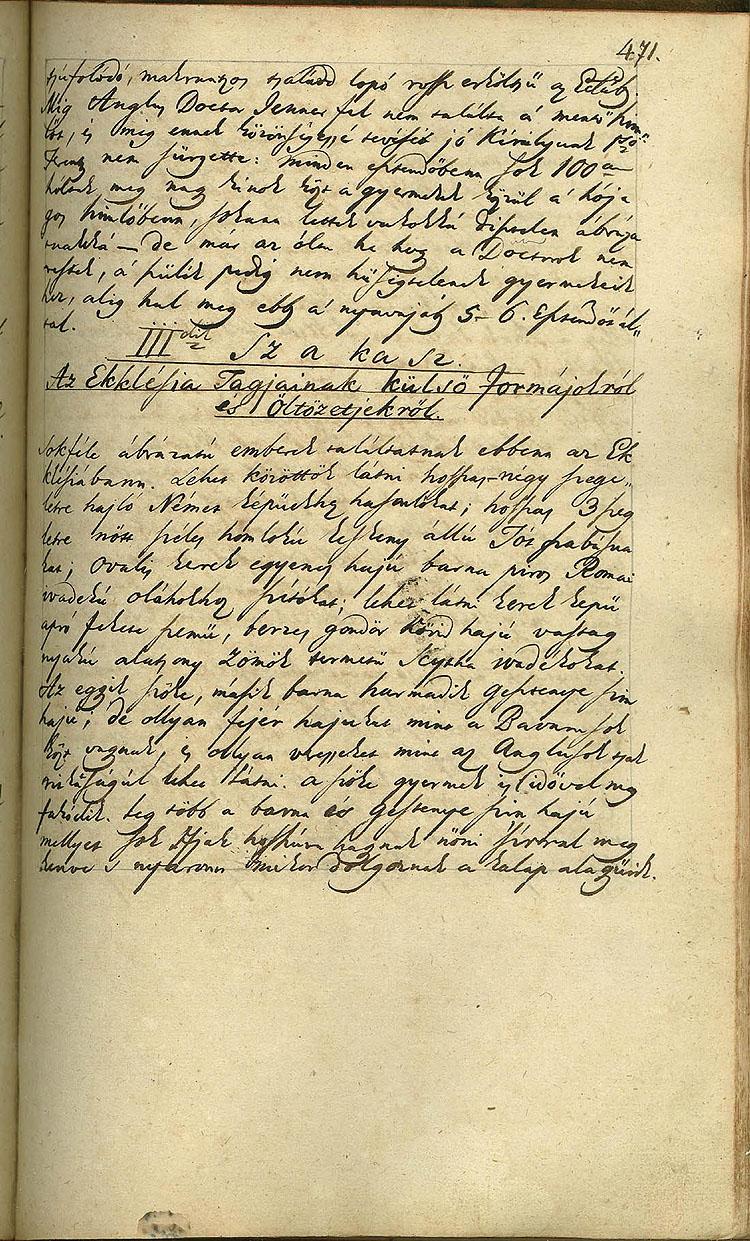 471.
makrantzos szaladó lopó rossz erköltsü az
Mig Anglus Doctor Jenner fel nem találta a' mentö him„
löt, és mig ennek közönségessé tevését jó Királyunk Iső
Ferentz nem sürgette: minden esztendöbenn sok 100an
holtak meg nagy kinok közt a gyermekek közül a' hója
gos himlöbenn, sokann lettek vakokká diztelen ábráza
tuakká — de már az ólta ha hogy a Doctorok nem
restek, a' szülék pedig nem hüségtelenek gyermekeik
hez, alig hal meg ebb a' nyavajáb 5–6. Esztendös ál„
tal.
IIIdik Szakasz.
Az Ekklésia Tagjainak külső formájokról
és Öltözetjekről.
Sokféle ábrázatú emberek találtatnak ebbenn az Ek
klésiábann. Lehet közöttök látni hosszas–négy szege„
letre hajló Német képüekhez hasonlókat; hosszas 3 szeg
letre nött széles homlokú keskeny állú Tót
kat; ovalis kerek egyenes hajú barna piros Romai
ivadékú oláhokhoz szítókat; lehet látni kerek képü
apró fekete szemü, berzes göndör rövid hajú vastag
nyakú alatsony zömök termetü Scytha ivadékokat.
Az egyik szöke, másik barna harmadik gesztenye szin
hajú; de ollyan fejér hajukat mint a Bavarusok
közt vagynak, és ollyan veresseket mint az Anglusok tsak
ritkaságúl lehet látni. a szöke gyermek is idövel meg
feketedik. Leg több a barna és gesztenye szin hajú
mellyet sok Ifjak hosszúra hagynak nöni sirral meg
kenve s nyáronn mikor dolgoznak a kalap alá gyürik.